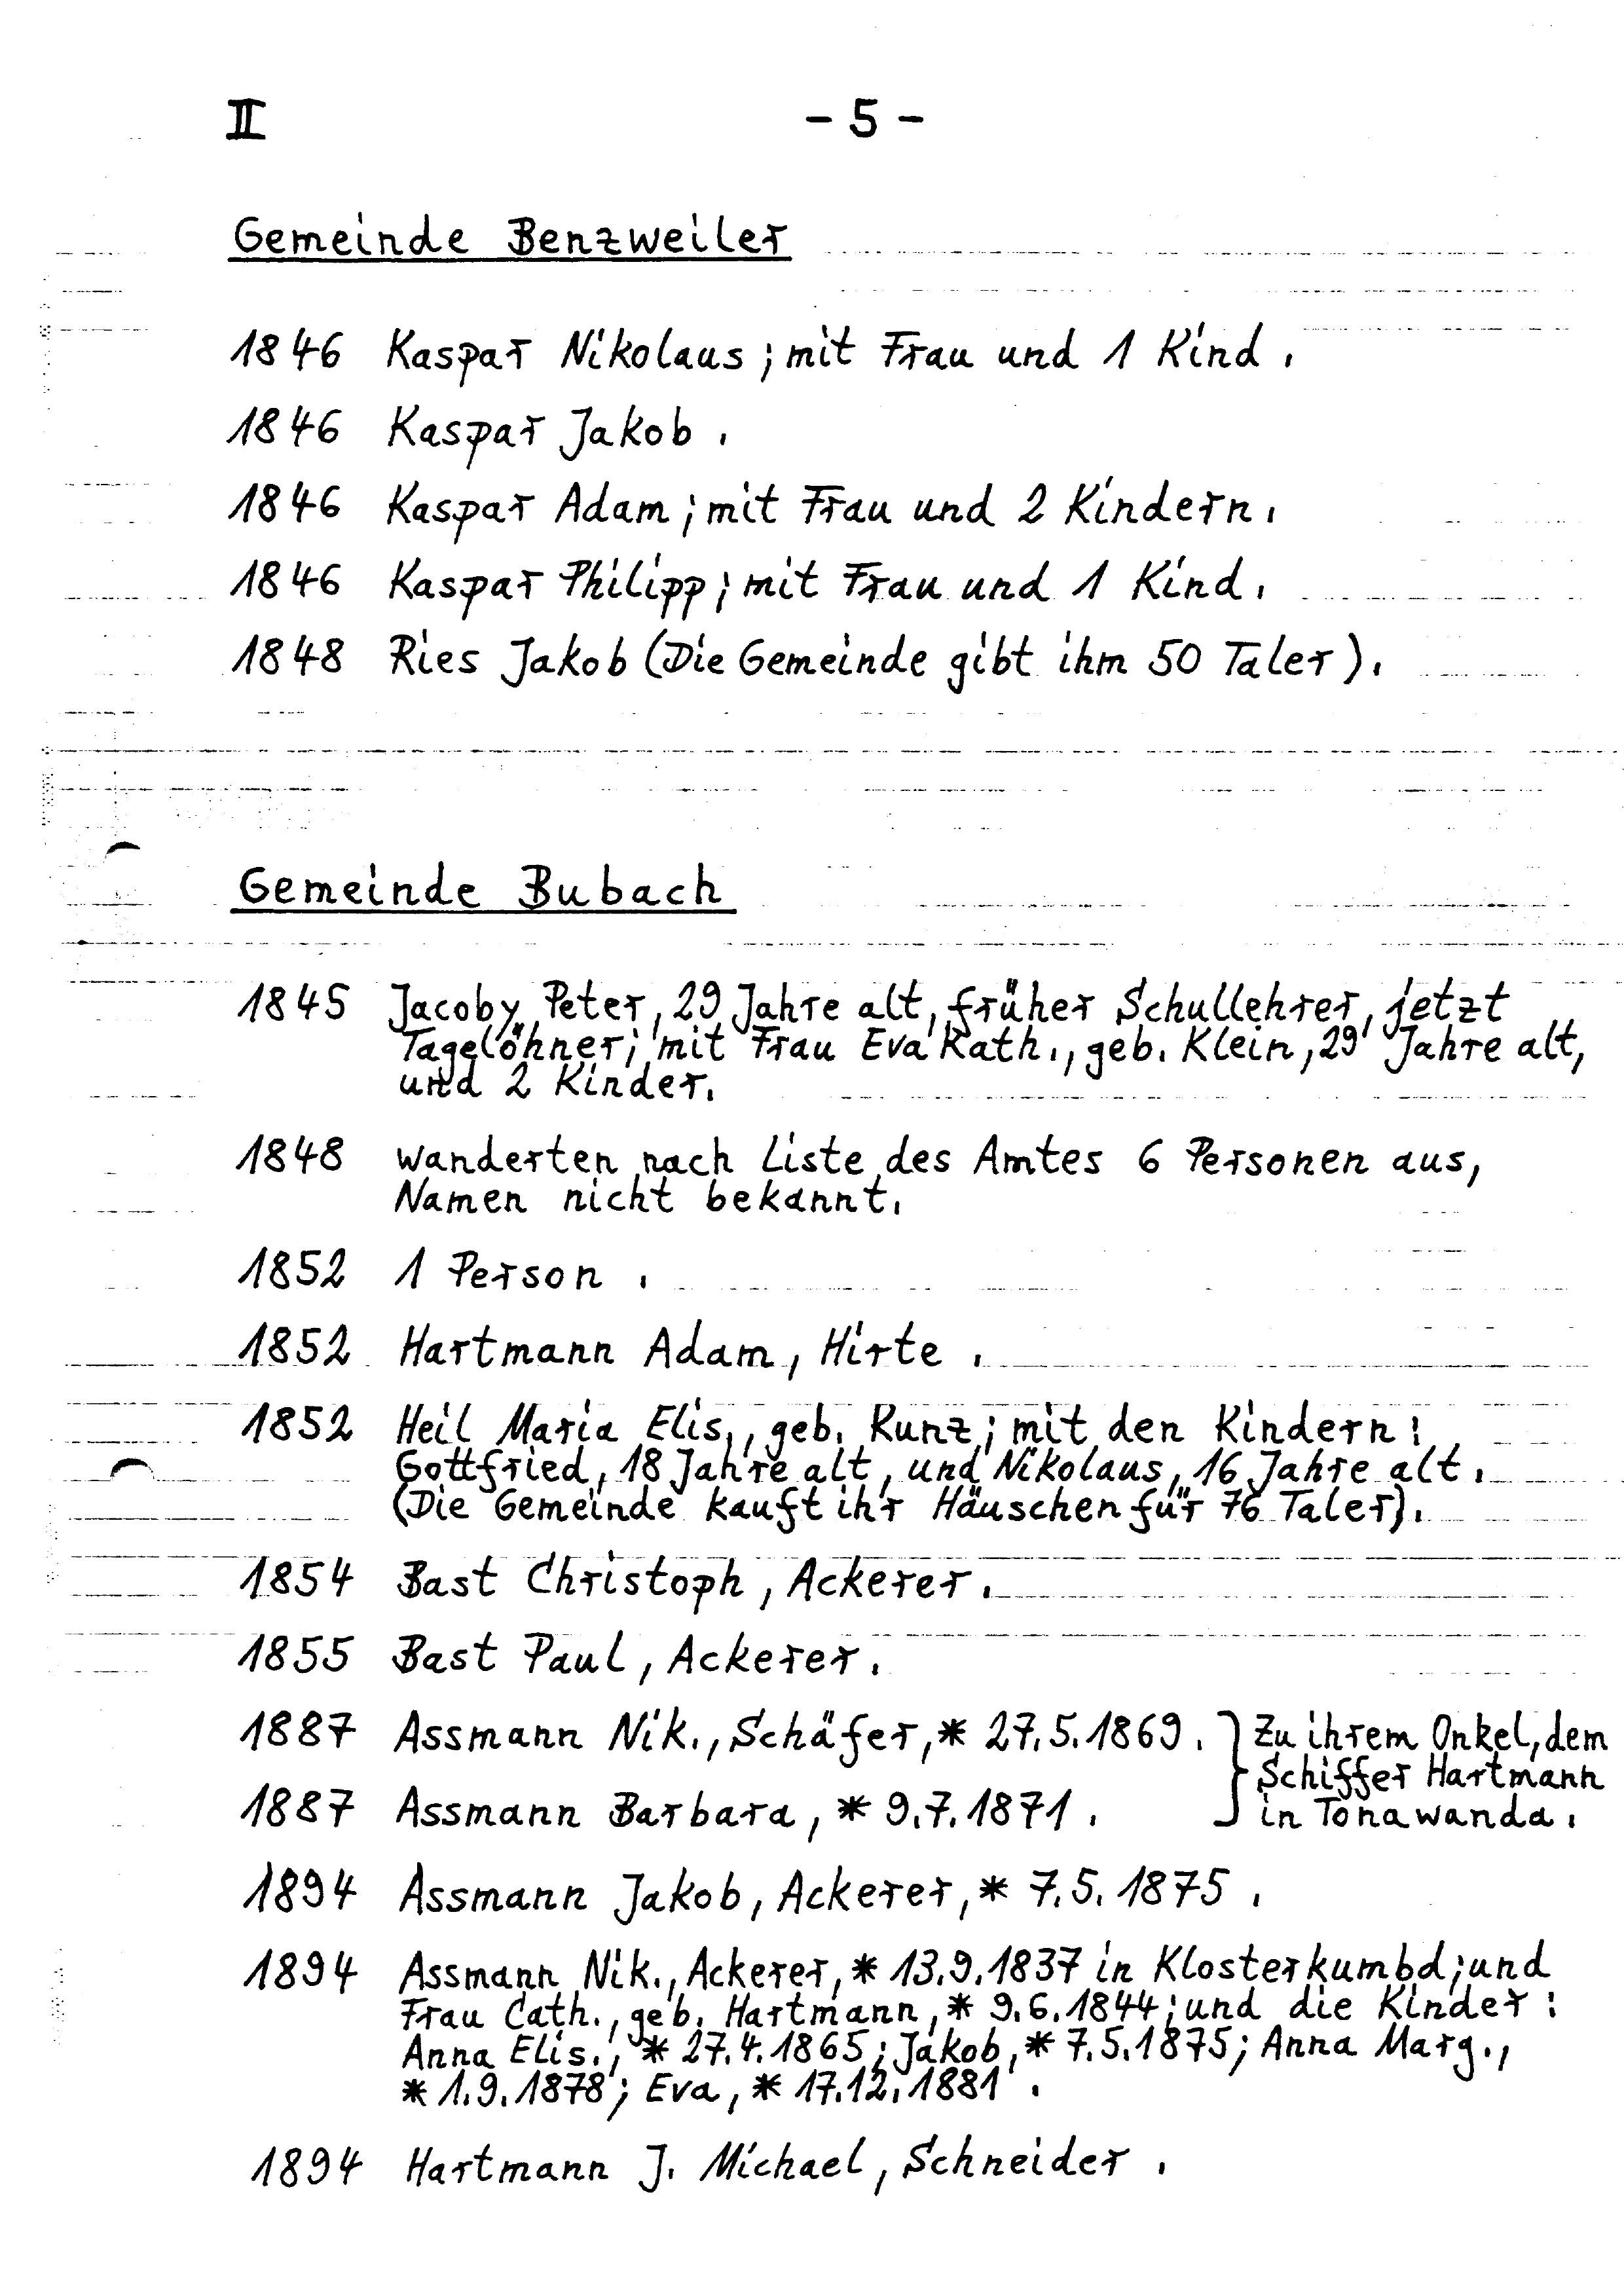 II - 5 -
Gemeinde Benzweiler
1846 Kaspar Nikolaus; mit Frau und 1 Kind.
1846 Kaspar Jakob.
1846 Kaspar Adam; mit Frau und 2 Kindern.
1846 Kaspar Philipp; mit Frau und 1 Kind.
1848 Ries Jakob (Die Gemeinde gibt ihm 50 Taler).
Gemeinde Bubach
1845 Jacoby Peter, 29 Jahre alt, früher Schullehrer, jetzt
Tagelöhner; mit Frau Eva Kath., geb. Klein, 29 Jahre alt,
und 2 Kinder.
1848 wanderten nach Liste des Amtes 6 Personen aus,
Namen nicht bekannt.
1852 1 Person.
1852 Hartmann Adam, Hirte.
1852 Heil Maria Elis., geb. Kunz; mit den Kindern:
Gottfried, 18 Jahre alt, und Nikolaus, 16 Jahre alt.
(Die Gemeinde kauft ihr Häuschen für 76 Taler).
1854 Bast Christoph, Ackerer.
1855 Bast Paul, Ackerer.
1887 Assmann Nik., Schäfer, * 27.5.1869.
1887 Assmann Barbara, * 9.7.1871.
Zu ihrem Onkel, dem
Schiffer Hartmann
in Tonawanda.
1894 Assmann Jakob, Ackerer, * 7.5.1875.
1894 Assmann Nik., Ackerer, * 13.9.1837 in Klosterkumbd; und
Frau Cath., geb. Hartmann, * 9.6.1844; und die Kinder:
Anna Elis., * 27.4.1865; Jakob, * 7.5.1875; Anna Marg.,
* 1.9.1878; Eva, * 17.12.1881.
1894 Hartmann J. Michael, Schneider.